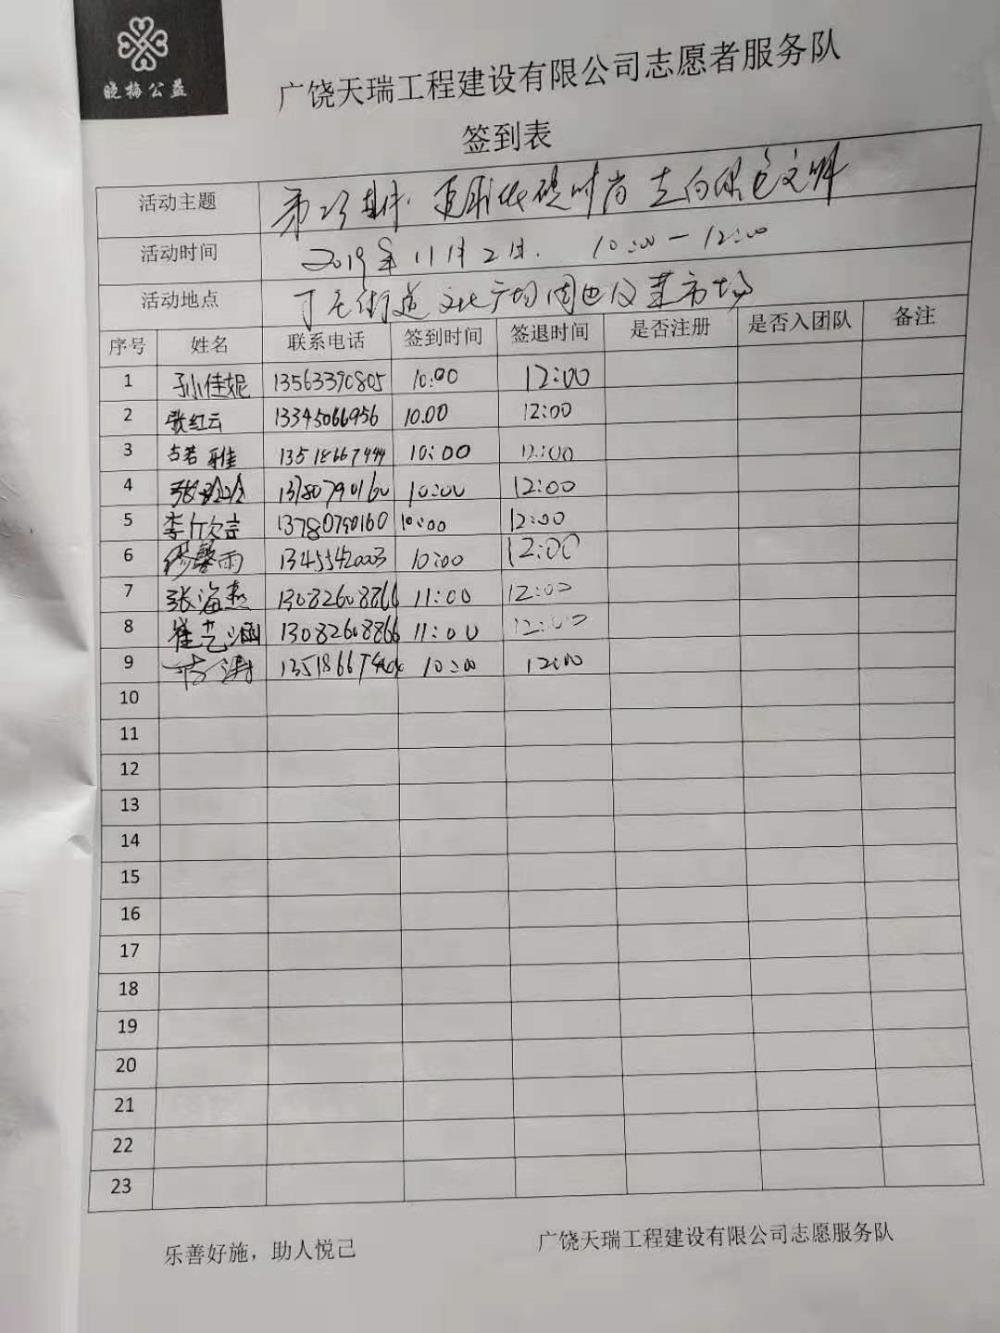 晓梅公益
广饶天瑞工程建设有限公司志愿者服务队
签到表
活动主题 第23期 时尚 走向绿色文明
活动时间 2019年11月2日. 10:00-12:00
活动地点 街道 文化广场周边及菜市场
序号 姓名 联系电话 签到时间 签退时间 是否注册 是否入团队 备注
1 孙佳妮 13563390805 10:00 12:00
2 张红云 13345066956 10.00 12:00
3 10:00 12:00
4 13780790160 10:00 12:00
5 李欣言 13780790160 10:00 12:00
6 缪馨雨 10:00 12:00
7 张海燕 13082608866 11:00 12:00
8 崔艺涵 13082608866 11:00 12:00
9 10:00 12:00
10
11
12
13
14
15
16
17
18
19
20
21
22
23
乐善好施，助人悦己
广饶天瑞工程建设有限公司志愿服务队